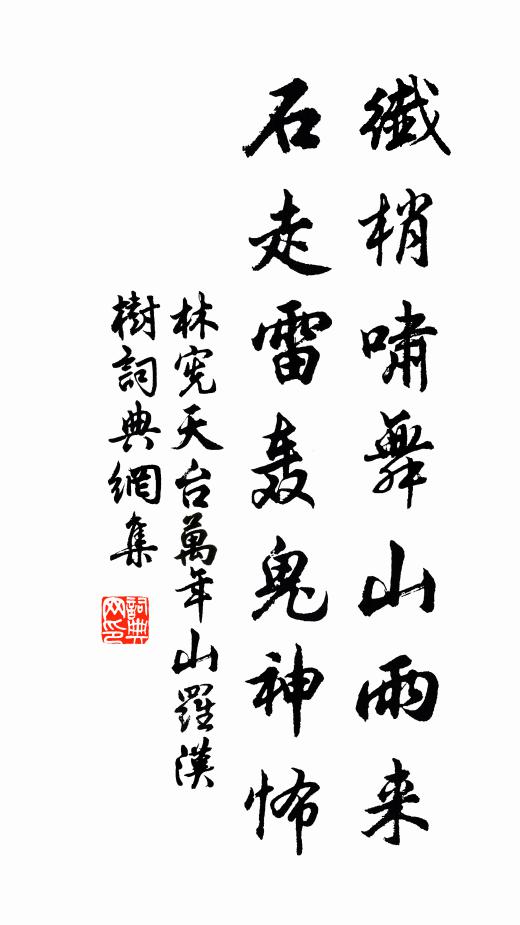 纖梢啸舞山雨来
石走雷轰鬼神怖
林宪天台萬年山羅漢
樹詞典網集
詞典网印